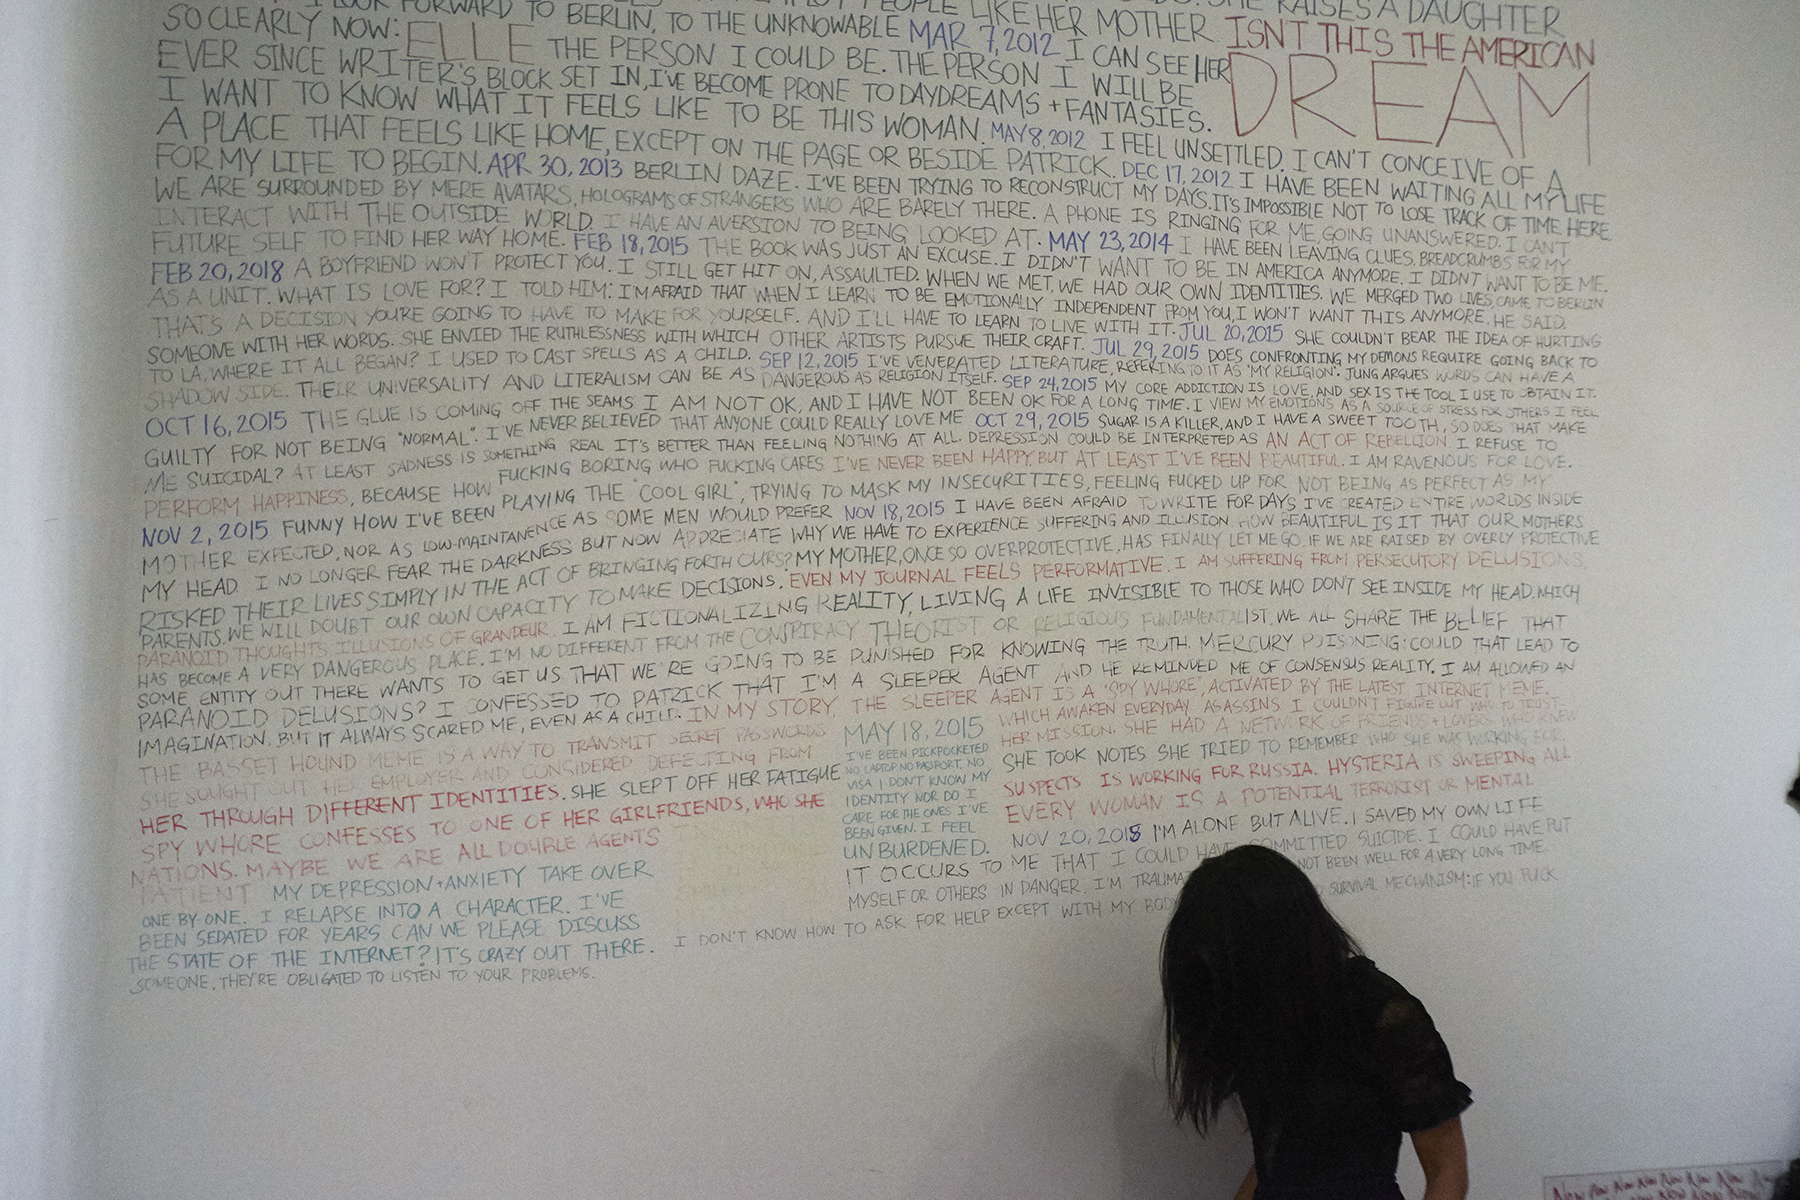 LOOK FORWARD TO BERLIN, TO THE UNKNOWABLE MAR 7, 2012 I CAN SEE HER
PEOPLE LIKE HER MOTHER. SHE RAISES A DAUGHTER
SO CLEARLY NOW: ELLE THE PERSON I COULD BE. THE PERSON I WILL BE
ISN'T THIS THE AMERICAN
DREAM
EVER SINCE WRITER'S BLOCK SET IN, I'VE BECOME PRONE TO DAYDREAMS + FANTASIES.
I WANT TO KNOW WHAT IT FEELS LIKE TO BE THIS WOMAN. MAY 8, 2012 I FEEL UNSETTLED. I CAN'T CONCEIVE OF A
A PLACE THAT FEELS LIKE HOME, EXCEPT ON THE PAGE OR BESIDE PATRICK. DEC 17, 2012 I HAVE BEEN WAITING ALL MY LIFE
FOR MY LIFE TO BEGIN. APR 30, 2013 BERLIN DAZE. I'VE BEEN TRYING TO RECONSTRUCT MY DAYS. IT'S IMPOSSIBLE NOT TO LOSE TRACK OF TIME HERE
WE ARE SURROUNDED BY MERE AVATARS, HOLOGRAMS OF STRANGERS WHO ARE BARELY THERE. A PHONE IS RINGING FOR ME, GOING UNANSWERED. I CAN'T
INTERACT WITH THE OUTSIDE WORLD. I HAVE AN AVERSION TO BEING LOOKED AT. MAY 23, 2014 I HAVE BEEN LEAVING CLUES, BREADCRUMBS FOR MY
FUTURE SELF TO FIND HER WAY HOME. FEB 18, 2015 THE BOOK WAS JUST AN EXCUSE. I DIDN'T WANT TO BE IN AMERICA ANYMORE. I DIDN'T WANT TO BE ME.
FEB 20, 2018 A BOYFRIEND WON'T PROTECT YOU. I STILL GET HIT ON, ASSAULTED. WHEN WE MET, WE HAD OUR OWN IDENTITIES. WE MERGED TWO LIVES, CAME TO BERLIN
AS A UNIT. WHAT IS LOVE FOR? I TOLD HIM: I'M AFRAID THAT WHEN I LEARN TO BE EMOTIONALLY INDEPENDENT FROM YOU, I WON'T WANT THIS ANYMORE. HE SAID:
THAT'S A DECISION YOU'RE GOING TO HAVE TO MAKE FOR YOURSELF. AND I'LL HAVE TO LEARN TO LIVE WITH IT. JUL 20, 2015 SHE COULDN'T BEAR THE IDEA OF HURTING
SOMEONE WITH HER WORDS. SHE ENVIED THE RUTHLESSNESS WITH WHICH OTHER ARTISTS PURSUE THEIR CRAFT. JUL 29, 2015 DOES CONFRONTING MY DEMONS REQUIRE GOING BACK TO
TO LA, WHERE IT ALL BEGAN? I USED TO CAST SPELLS AS A CHILD. SEP 12, 2015 I'VE VENERATED LITERATURE, REFERING TO IT AS "MY RELIGION". JUNG ARGUES WORDS CAN HAVE A
SHADOW SIDE. THEIR UNIVERSALITY AND LITERALISM CAN BE AS DANGEROUS AS RELIGION ITSELF. SEP 24, 2015 MY CORE ADDICTION IS LOVE, AND SEX IS THE TOOL I USE TO OBTAIN IT.
OCT 16, 2015 THE GLUE IS COMING OFF THE SEAMS. I AM NOT OK, AND I HAVE NOT BEEN OK FOR A LONG TIME. I VIEW MY EMOTIONS AS A SOURCE OF STRESS FOR OTHERS. I FEEL
GUILTY FOR NOT BEING "NORMAL". I'VE NEVER BELIEVED THAT ANYONE COULD REALLY LOVE ME OCT 29, 2015 SUGAR IS A KILLER, AND I HAVE A SWEET TOOTH, SO DOES THAT MAKE
ME SUICIDAL? AT LEAST SADNESS IS SOMETHING REAL IT'S BETTER THAN FEELING NOTHING AT ALL. DEPRESSION COULD BE INTERPRETED AS AN ACT OF REBELLION. I REFUSE TO
PERFORM HAPPINESS, BECAUSE HOW FUCKING BORING WHO FUCKING CARES I'VE NEVER BEEN HAPPY, BUT AT LEAST I'VE BEEN BEAUTIFUL. I AM RAVENOUS FOR LOVE.
NOV 2, 2015 FUNNY HOW I'VE BEEN PLAYING THE "COOL GIRL", TRYING TO MASK MY INSECURITIES, FEELING FUCKED UP FOR NOT BEING AS PERFECT AS MY
MOTHER EXPECTED, NOR AS LOW-MAINTANENCE AS SOME MEN WOULD PREFER NOV 18, 2015 I HAVE BEEN AFRAID TO WRITE FOR DAYS I'VE CREATED ENTIRE WORLDS INSIDE
MY HEAD. I NO LONGER FEAR THE DARKNESS BUT NOW APPRECIATE WHY WE HAVE TO EXPERIENCE SUFFERING AND ILLUSION. HOW BEAUTIFUL IS IT THAT OUR MOTHERS
RISKED THEIR LIVES SIMPLY IN THE ACT OF BRINGING FORTH OURS? MY MOTHER, ONCE SO OVERPROTECTIVE, HAS FINALLY LET ME GO. IF WE ARE RAISED BY OVERLY PROTECTIVE
PARENTS, WE WILL DOUBT OUR OWN CAPACITY TO MAKE DECISIONS. EVEN MY JOURNAL FEELS PERFORMATIVE. I AM SUFFERING FROM PERSECUTORY DELUSIONS,
PARANOID THOUGHTS ILLUSIONS OF GRANDEUR. I AM FICTIONALIZING REALITY, LIVING A LIFE INVISIBLE TO THOSE WHO DON'T SEE INSIDE MY HEAD, WHICH
HAS BECOME A VERY DANGEROUS PLACE. I'M NO DIFFERENT FROM THE CONSPIRACY THEORIST OR RELIGIOUS FUNDAMENTALIST. WE ALL SHARE THE BELIEF THAT
SOME ENTITY OUT THERE WANTS TO GET US THAT WE'RE GOING TO BE PUNISHED FOR KNOWING THE TRUTH. MERCURY POISONING: COULD THAT LEAD TO
PARANOID DELUSIONS? I CONFESSED TO PATRICK THAT I'M A SLEEPER AGENT AND HE REMINDED ME OF CONSENSUS REALITY. I AM ALLOWED AN
IMAGINATION. BUT IT ALWAYS SCARED ME, EVEN AS A CHILD. IN MY STORY, THE SLEEPER AGENT IS A "SPY WHORE", ACTIVATED BY THE LATEST INTERNET MEME.
THE BASSET HOUND MEME IS A WAY TO TRANSMIT SECRET PASSWORDS
WHICH AWAKEN EVERYDAY ASASSINS. I COULDN'T FIGURE OUT WHO TO TRUST.
SHE SOUGHT OUT HER EMPLOYER AND CONSIDERED DEFECTING FROM
HER MISSION. SHE HAD A NETWORK OF FRIENDS + LOVERS WHO KNEW
HER THROUGH DIFFERENT IDENTITIES. SHE SLEPT OFF HER FATIGUE
SHE TOOK NOTES SHE TRIED TO REMEMBER WHO SHE WAS WORKING FOR.
SPY WHORE CONFESSES TO ONE OF HER GIRLFRIENDS, WHO SHE
SUSPECTS IS WORKING FOR RUSSIA. HYSTERIA IS SWEEPING ALL
NATIONS. MAYBE WE ARE ALL DOUBLE AGENTS
EVERY WOMAN IS A POTENTIAL TERRORIST OR MENTAL
PATIENT MY DEPRESSION + ANXIETY TAKE OVER
ONE BY ONE. I RELAPSE INTO A CHARACTER. I'VE
BEEN SEDATED FOR YEARS CAN WE PLEASE DISCUSS
THE STATE OF THE INTERNET? IT'S CRAZY OUT THERE.
MAY 18, 2015
I'VE BEEN PICKPOCKETED
NO LAPTOP, NO PASSPORT, NO
VISA I DON'T KNOW MY
IDENTITY NOR DO I
CARE FOR THE ONES I'VE
BEEN GIVEN. I FEEL
UNBURDENED.
NOV 20, 2018 I'M ALONE BUT ALIVE. I SAVED MY OWN LIFE
IT OCCURS TO ME THAT I COULD HAVE COMMITTED SUICIDE. I COULD HAVE PUT
MYSELF OR OTHERS IN DANGER. I'M NOT BEEN WELL FOR A VERY LONG TIME.
I DON'T KNOW HOW TO ASK FOR HELP EXCEPT WITH MY SURVIVAL MECHANISM: IF YOU FUCK
SOMEONE, THEY'RE OBLIGATED TO LISTEN TO YOUR PROBLEMS.